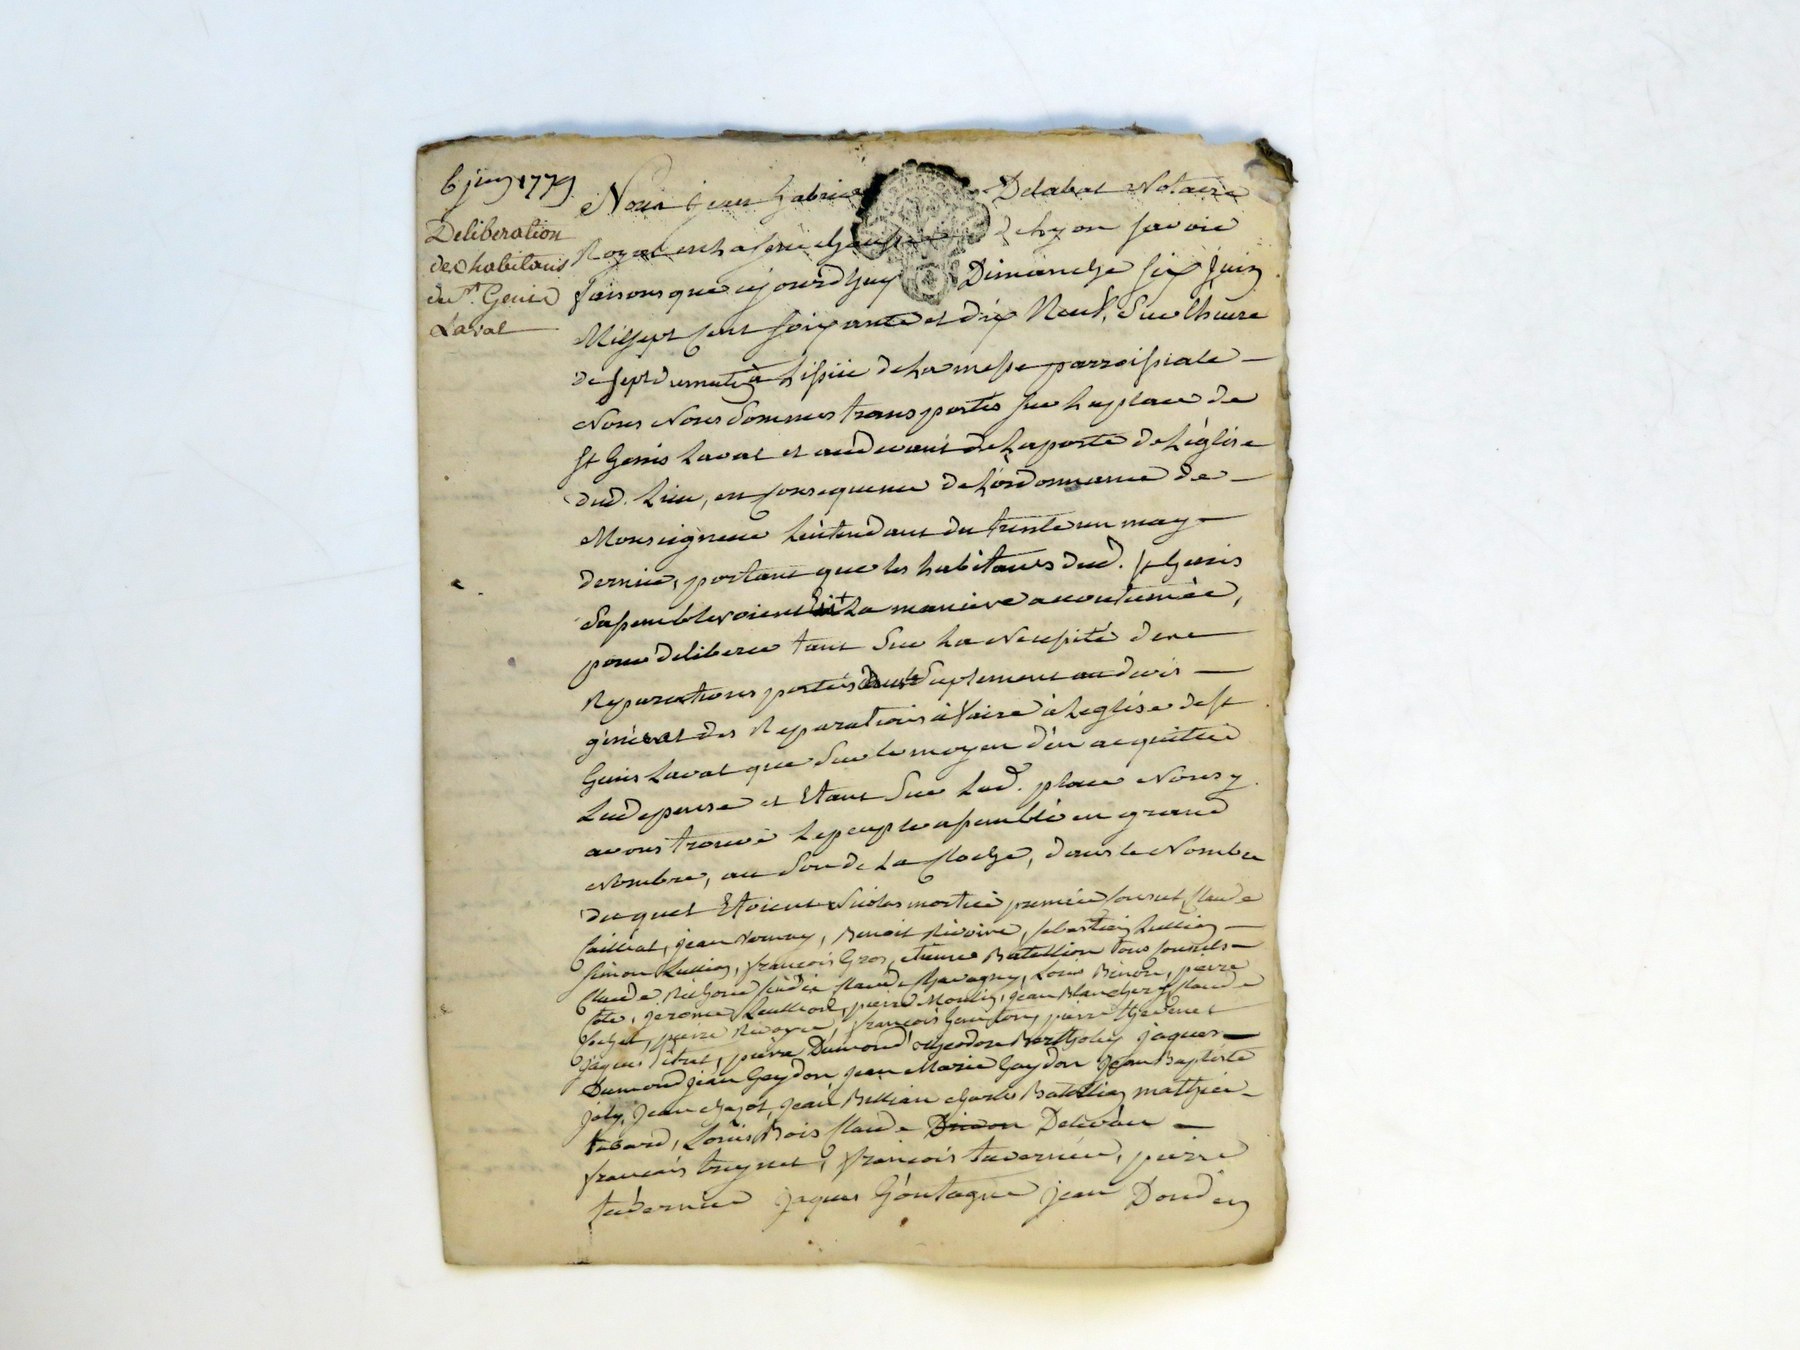 6 juin 1779
Deliberation
des habitans
de St. Genis
Laval
Nous jean Gabriel Delabat Notaire
Royal en la Sene de Lyon savoir
faisons que cejourdhuy Dimanche six Juin
Mil sept cent soixante et dix Neuf, sur lheure
de sept du matin à lissüe de la messe parroissiale
Nous Nous sommes transportés sur la place de
St Genis Laval et audevant de la porte de Léglise
dud. Lieu, en consequence de Lordonnance de
Monseigneur Lintendant du trente un may
dernier, portant que les habitans dud. St Genis
Sassembleroient en la maniere accoutumée,
pour deliberer tant sur la Necessité des
Reparations portées Suplement au devis
général des Reparations à faire à Leglise de St
Genis Laval que sur le moyen d'en acquitter
La depense et Etant sur lad. place Nous y
avons trouvé Le peuple assemblé en grand
Nombre, au Son de La Cloche, dans le Nombre
duquel Etoient Nicolas mortier premier Consul Claude
jean Vernay, Benoit Rivoire, Sebastien
Simon françois Gros, etienne Batallion tous Consuls
Claude Claude Chavagny, Louis pierre
Cote, jerome pierre Moulin, jean Blancherd Claude
pierre françois pierre thevenet
jaques pierre Dumond Bertholey jaques
Dumond jean Gaydon jean Marie Gaydon jean Baptiste
joly, jean jean charles Batallion mathieu
tabard, Louis Bois Claude
françois françois tavernier, pierre
tavernier jaques Goutagne jean